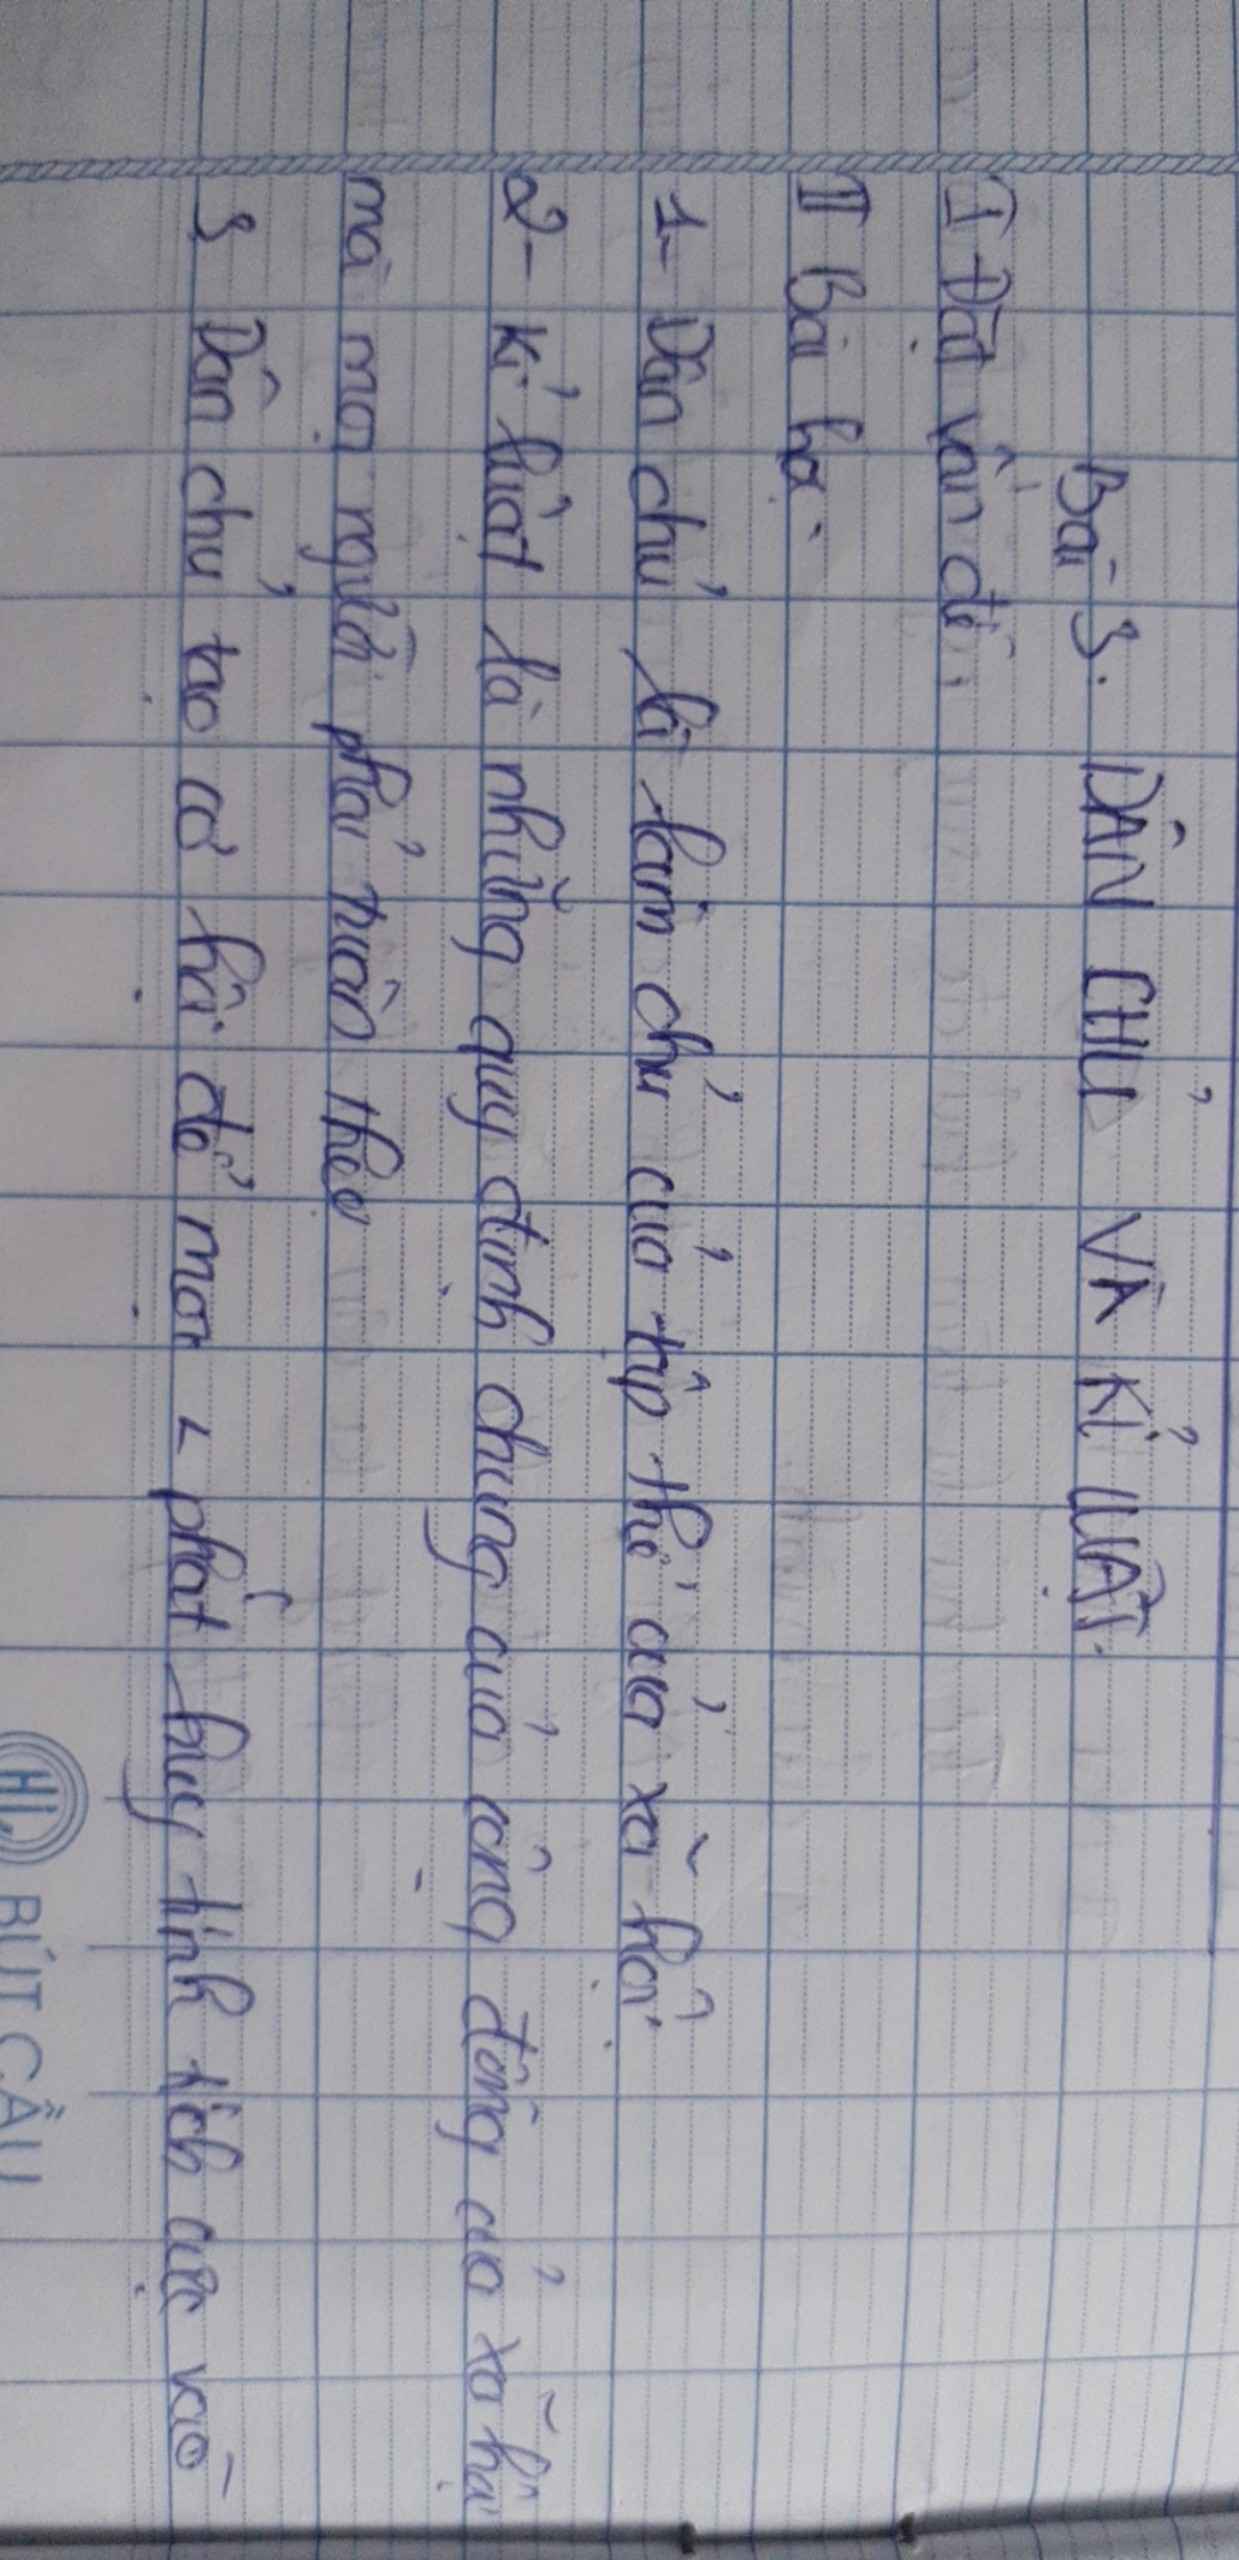 Bài 3. DÂN CHỦ VÀ KỈ LUẬT.
I Đặt vấn đề.
II Bài học
1- Dân chủ là làm chủ của tập thể của xã hội.
2- Kỉ luật là những quy định chung của cộng đồng của xã hội
mà mọi người phải tuân theo
3 Dân chủ tạo cơ hội để mọi < phát huy tính tích cực vào
BÚT CẦU